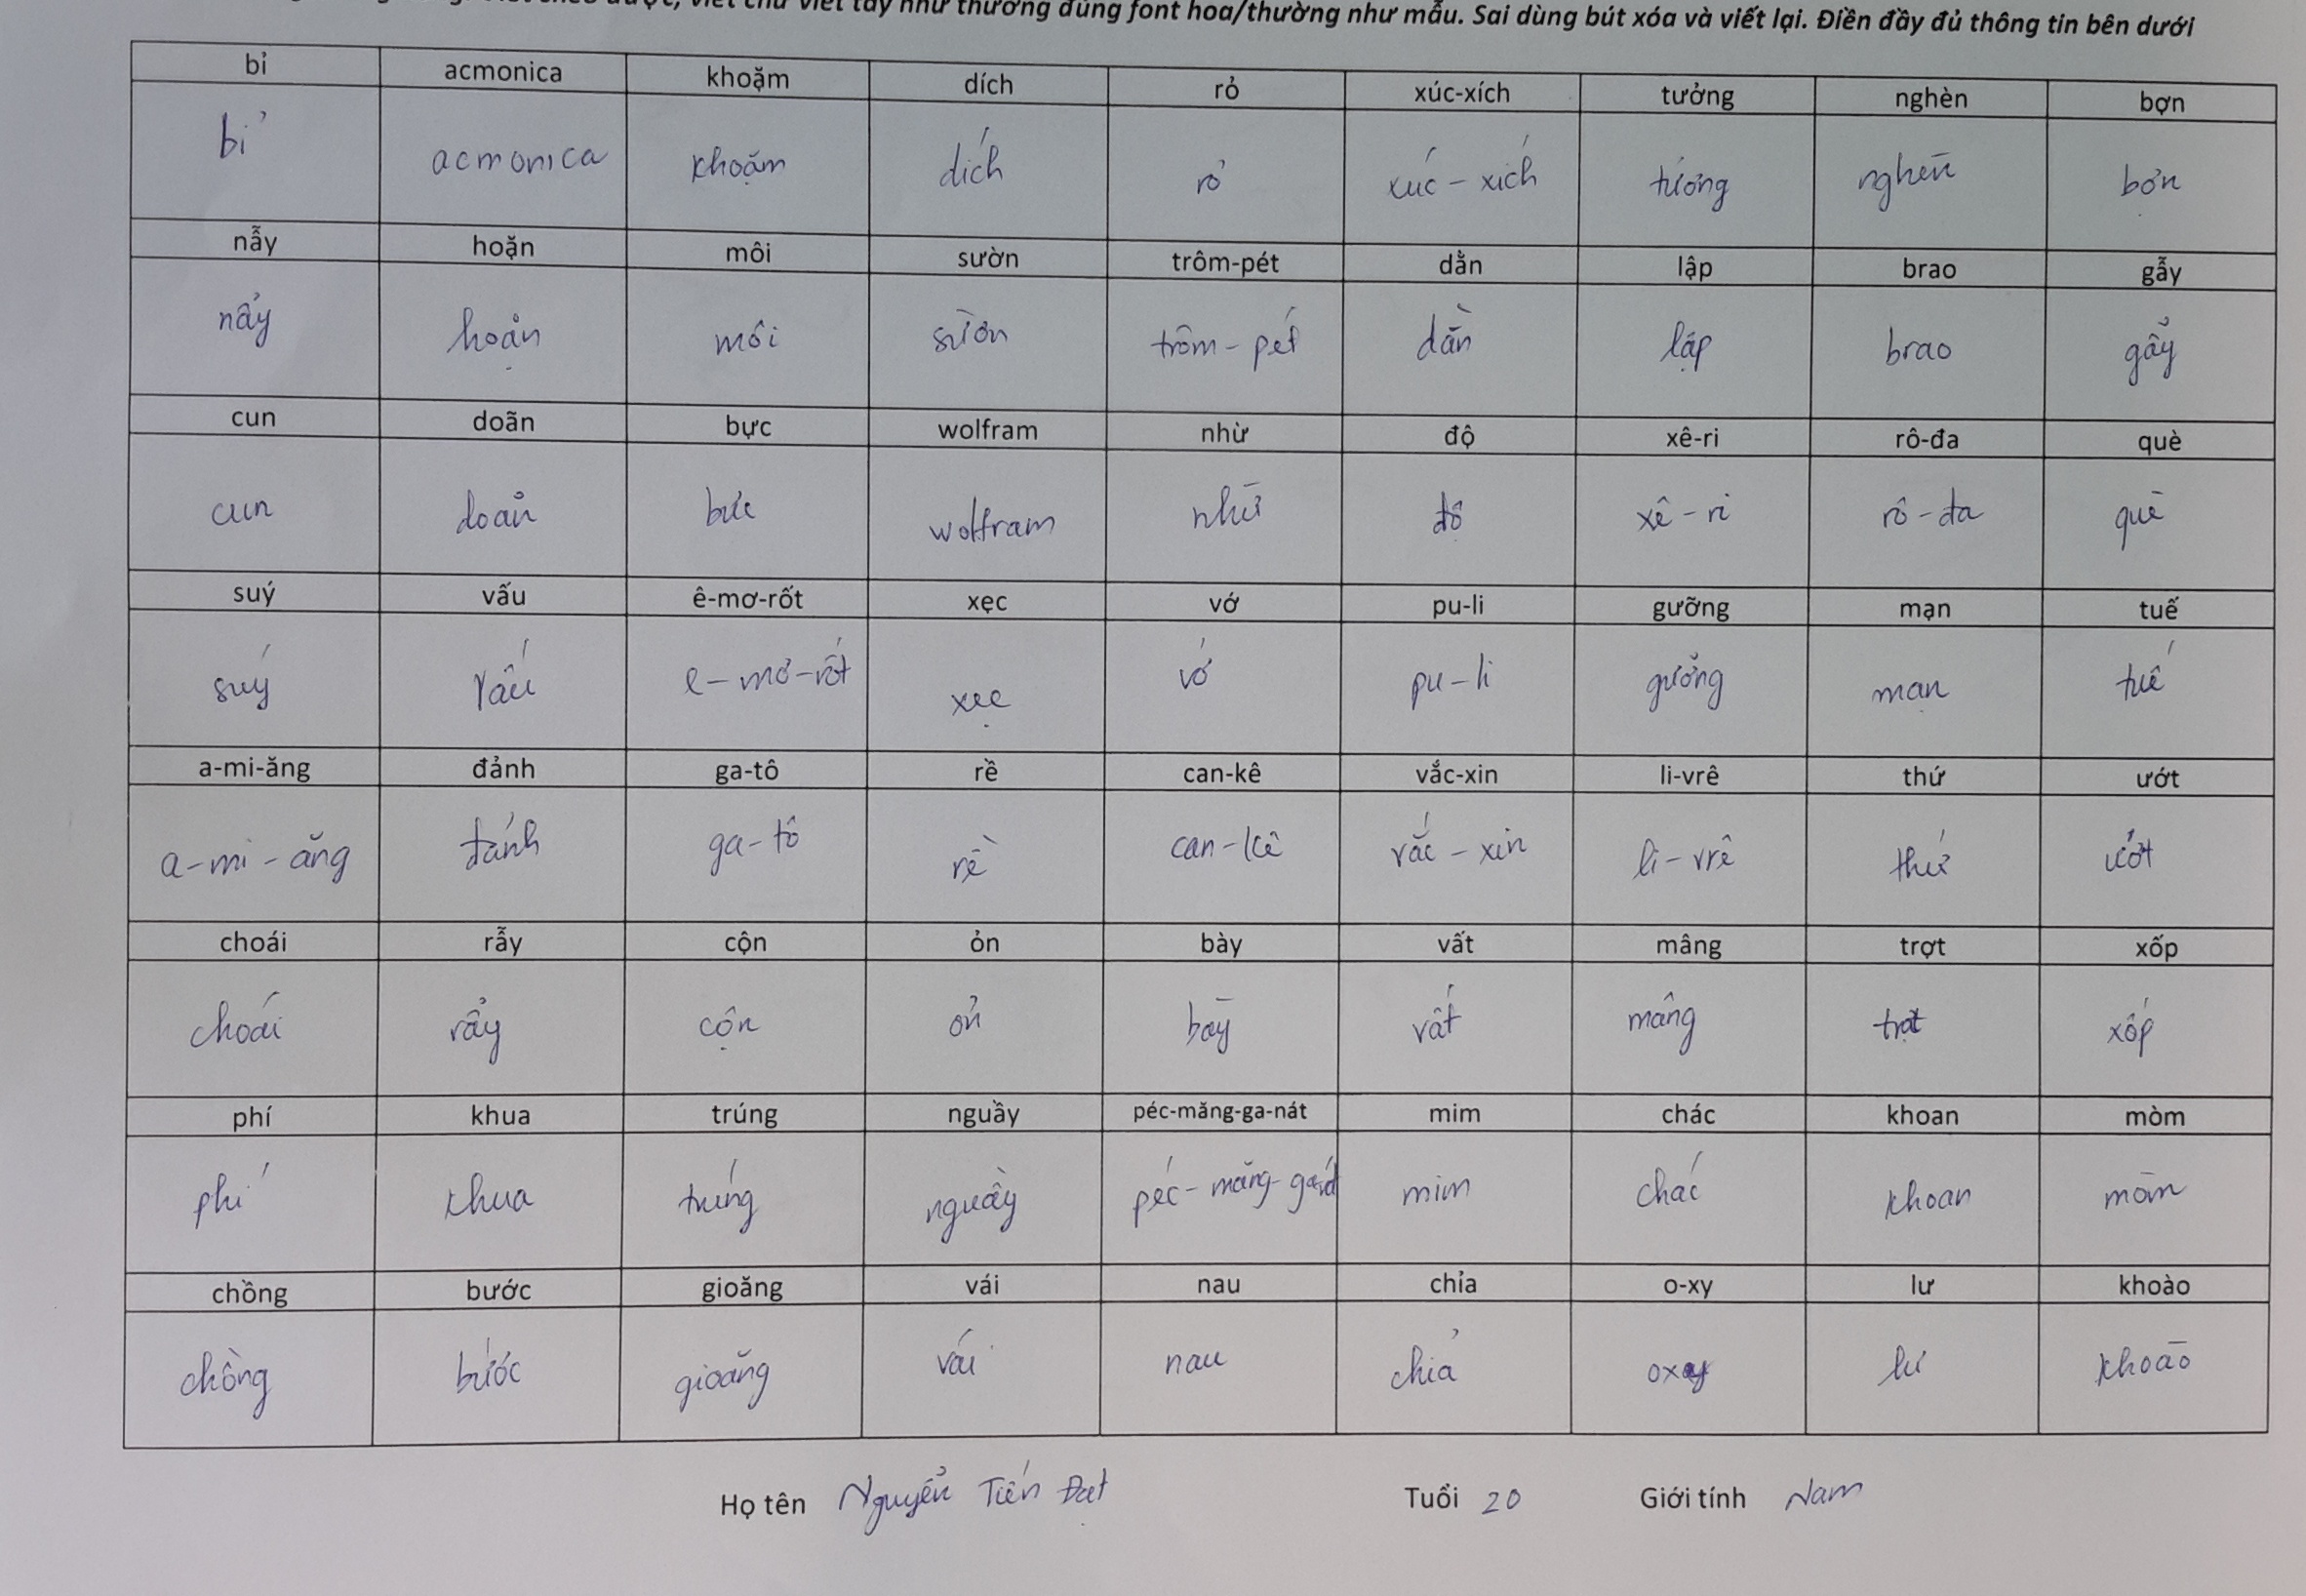 viết chữ viết tay như thường đúng font hoa/thường như mẫu. Sai dùng bút xóa và viết lại. Điền đầy đủ thông tin bên dưới
bỉ acmonica khoặm dích rỏ xúc-xích tưởng nghèn bợn
bỉ acmonica khoặm dích rỏ xúc - xích tưởng nghèn bợn
nẫy hoặn môi sườn trôm-pét dằn lập brao gẫy
nẫy hoặn môi sườn trôm - pét dằn lập brao gẫy
cun doãn bực wolfram nhừ độ xê-ri rô-đa què
cun doãn bực wolfram nhừ độ xê - ri rô - đa què
suý vấu ê-mơ-rốt xẹc vớ pu-li gưỡng mạn tuế
suý vấu e - mơ - rốt xẹc vớ pu - li gưỡng mạn tuế
a-mi-ăng đảnh ga-tô rề can-kê vắc-xin li-vrê thứ ướt
a - mi - ăng đảnh ga - tô rề can - kê vắc - xin li - vrê thứ ướt
choái rẫy cộn ỏn bày vất mâng trợt xốp
choái rẫy cộn ỏn bày vất mâng trợt xốp
phí khua trúng nguầy péc-măng-ga-nát mim chác khoan mòm
phí khua trúng nguầy péc - măng - mim chác khoan mòm
chồng bước gioăng vái nau chỉa o-xy lư khoào
chồng bước gioăng vái nau chỉa oxy lư khoào
Họ tên Nguyễn Tiến Đạt Tuổi 20 Giới tính Nam